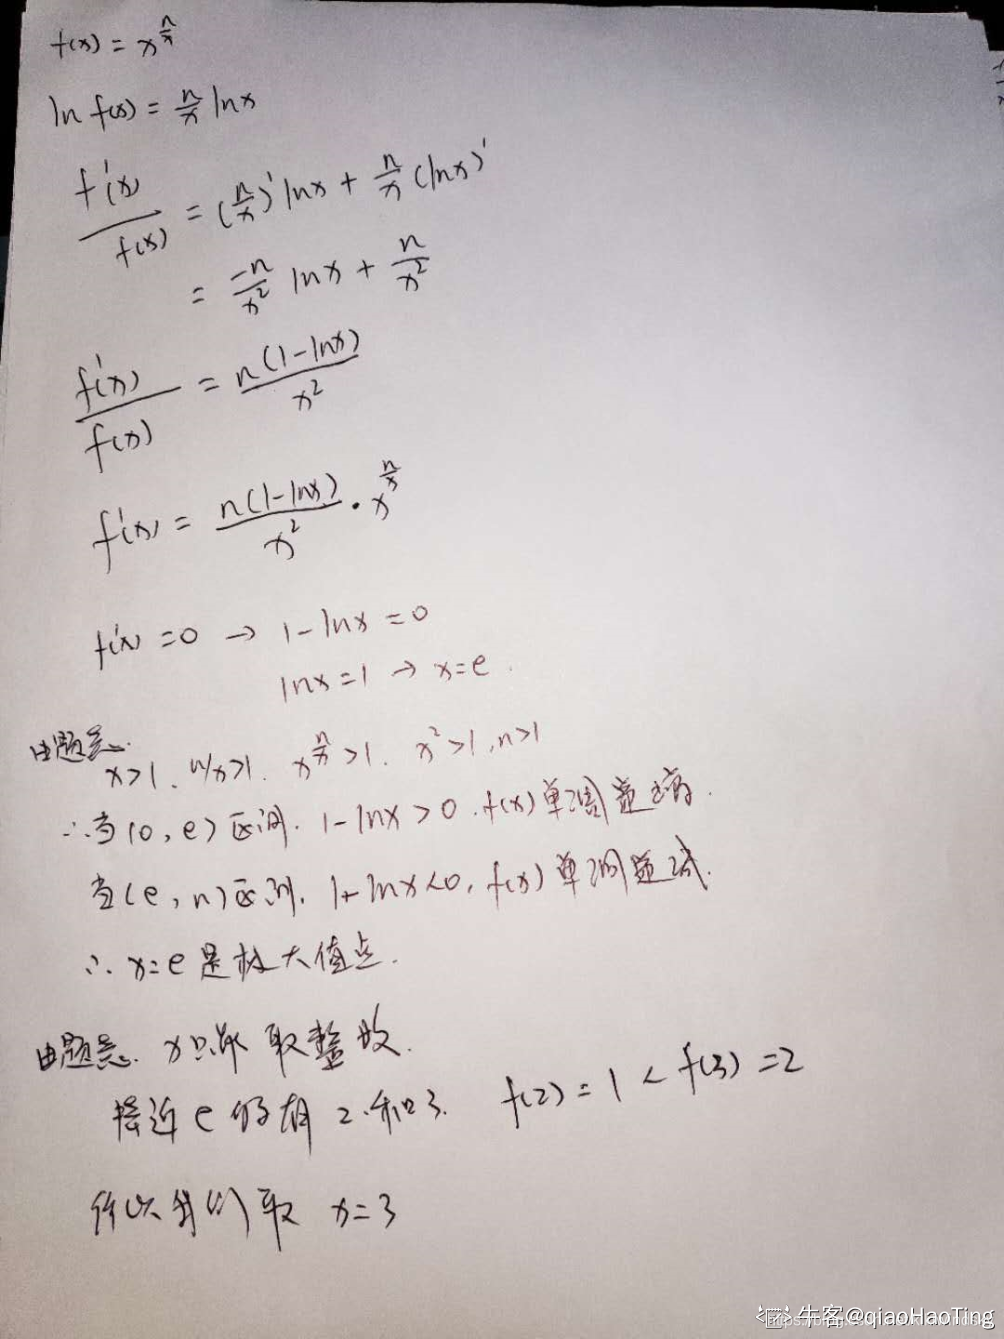 f(x) = x^{n/x}
ln f(x) = n/x ln x
f'(x)/f(x) = (n/x)' ln x + n/x (ln x)'
= -n/x² ln x + n/x²
f'(x)/f(x) = n(1-ln x)/x²
f'(x) = n(1-ln x)/x² · x^{n/x}
f'(x) = 0 → 1-ln x = 0
ln x = 1 → x = e.
由题意. x>1. n/x>1. x^{n/x}>1. x²>1, n>1
∴当(0, e)区间. 1-ln x>0. f(x)单调递增.
当(e, n)区间. 1-ln x<0, f(x)单调递减.
∴ x=e是极大值点.
由题意. x只能取整数.
接近e的有2.和3. f(2)=1 < f(3)=2
所以我们取 x=3
牛客@qiaoHaoTing